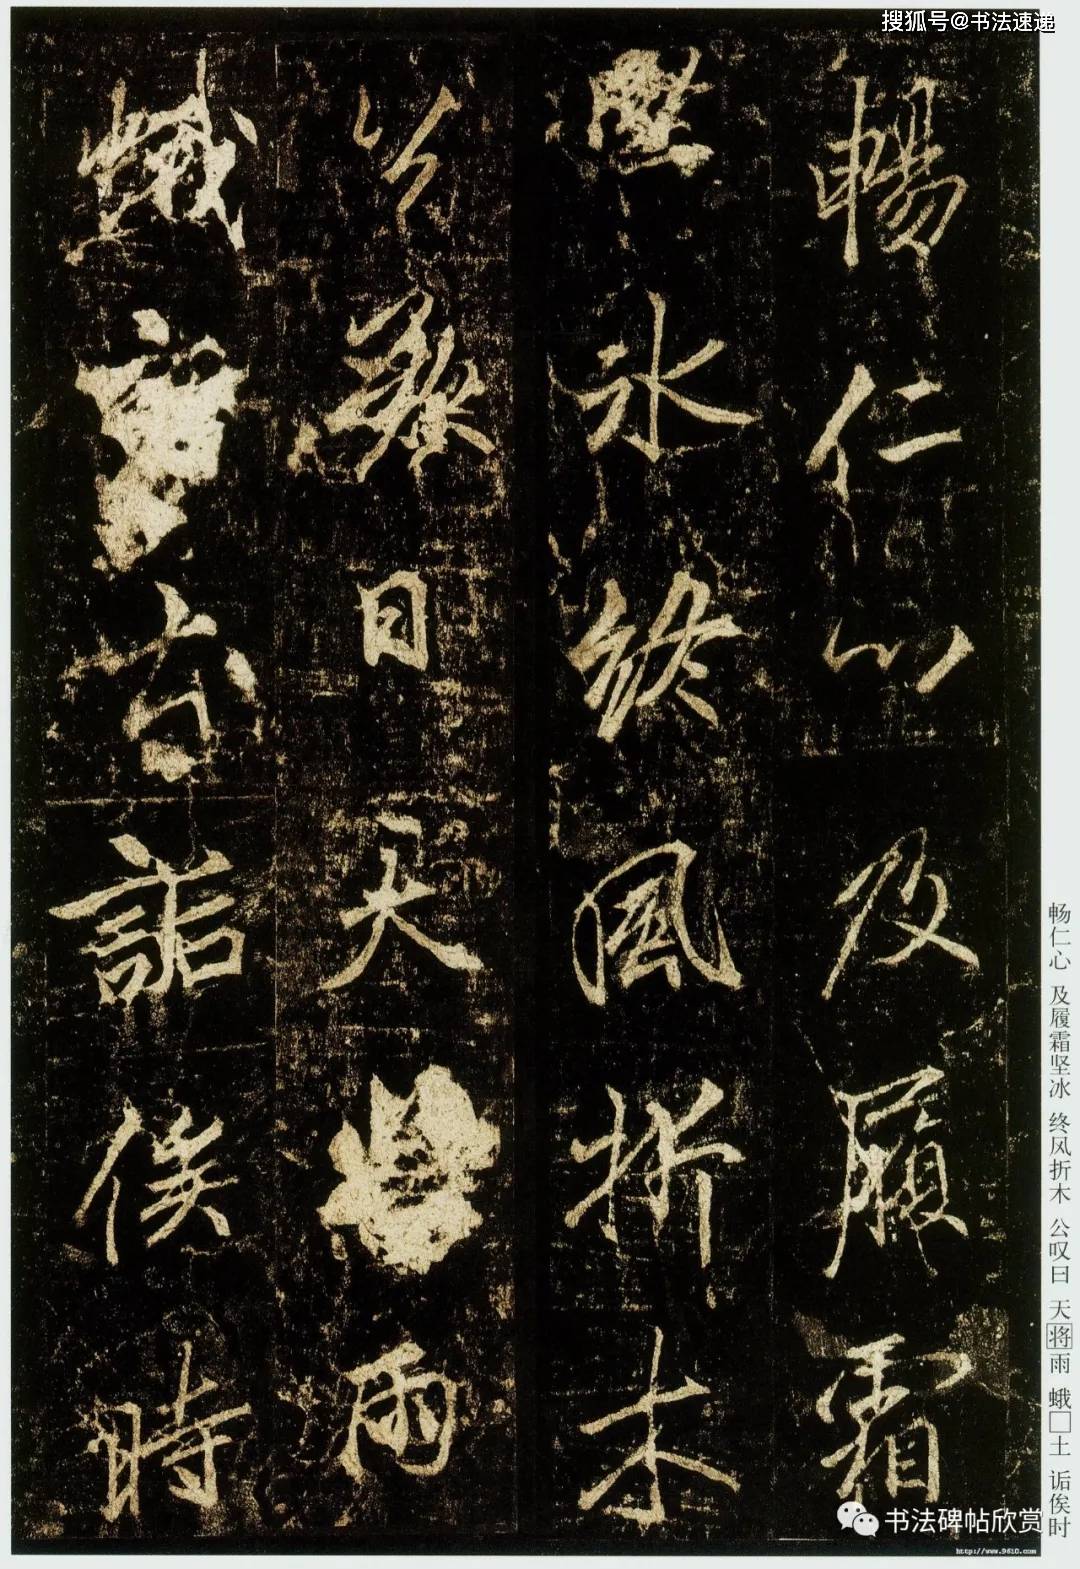 搜狐号@书法速递
暢仁心及履霜
堅冰終風折木
公歎曰天雨
蛾土詬俟時
畅仁心 及履霜坚冰 终风折木 公叹曰 天将雨 蛾□土 诟俟时
书法碑帖欣赏
http://www.9610.com